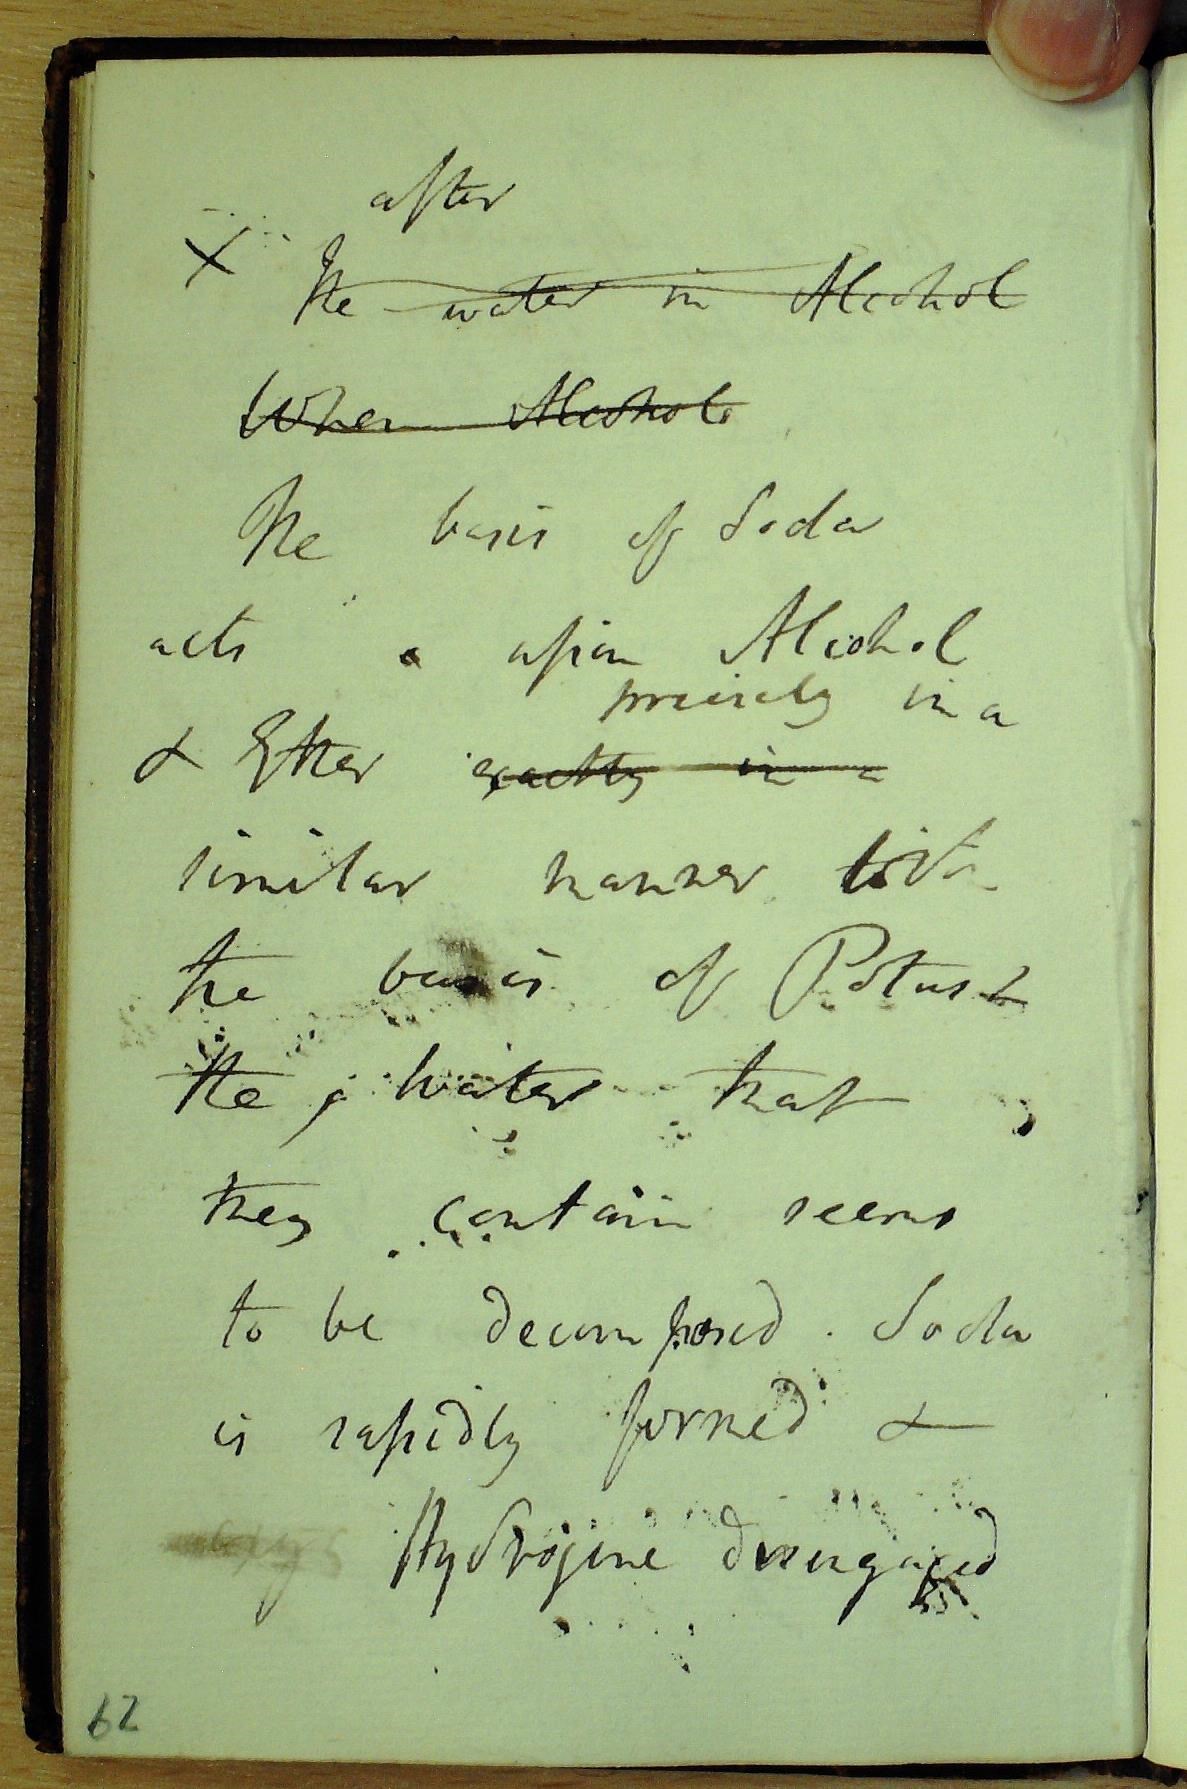 after
× The water in Alcohol
When Alcohol
The basis of Soda
acts upon Alcohol
precisely in a
& Ether exactly in a
similar manner with
the basis of Potash
The water that
they contain seems
to be decomposed. Soda
is rapidly formed &
Hydrogene disengaged
62